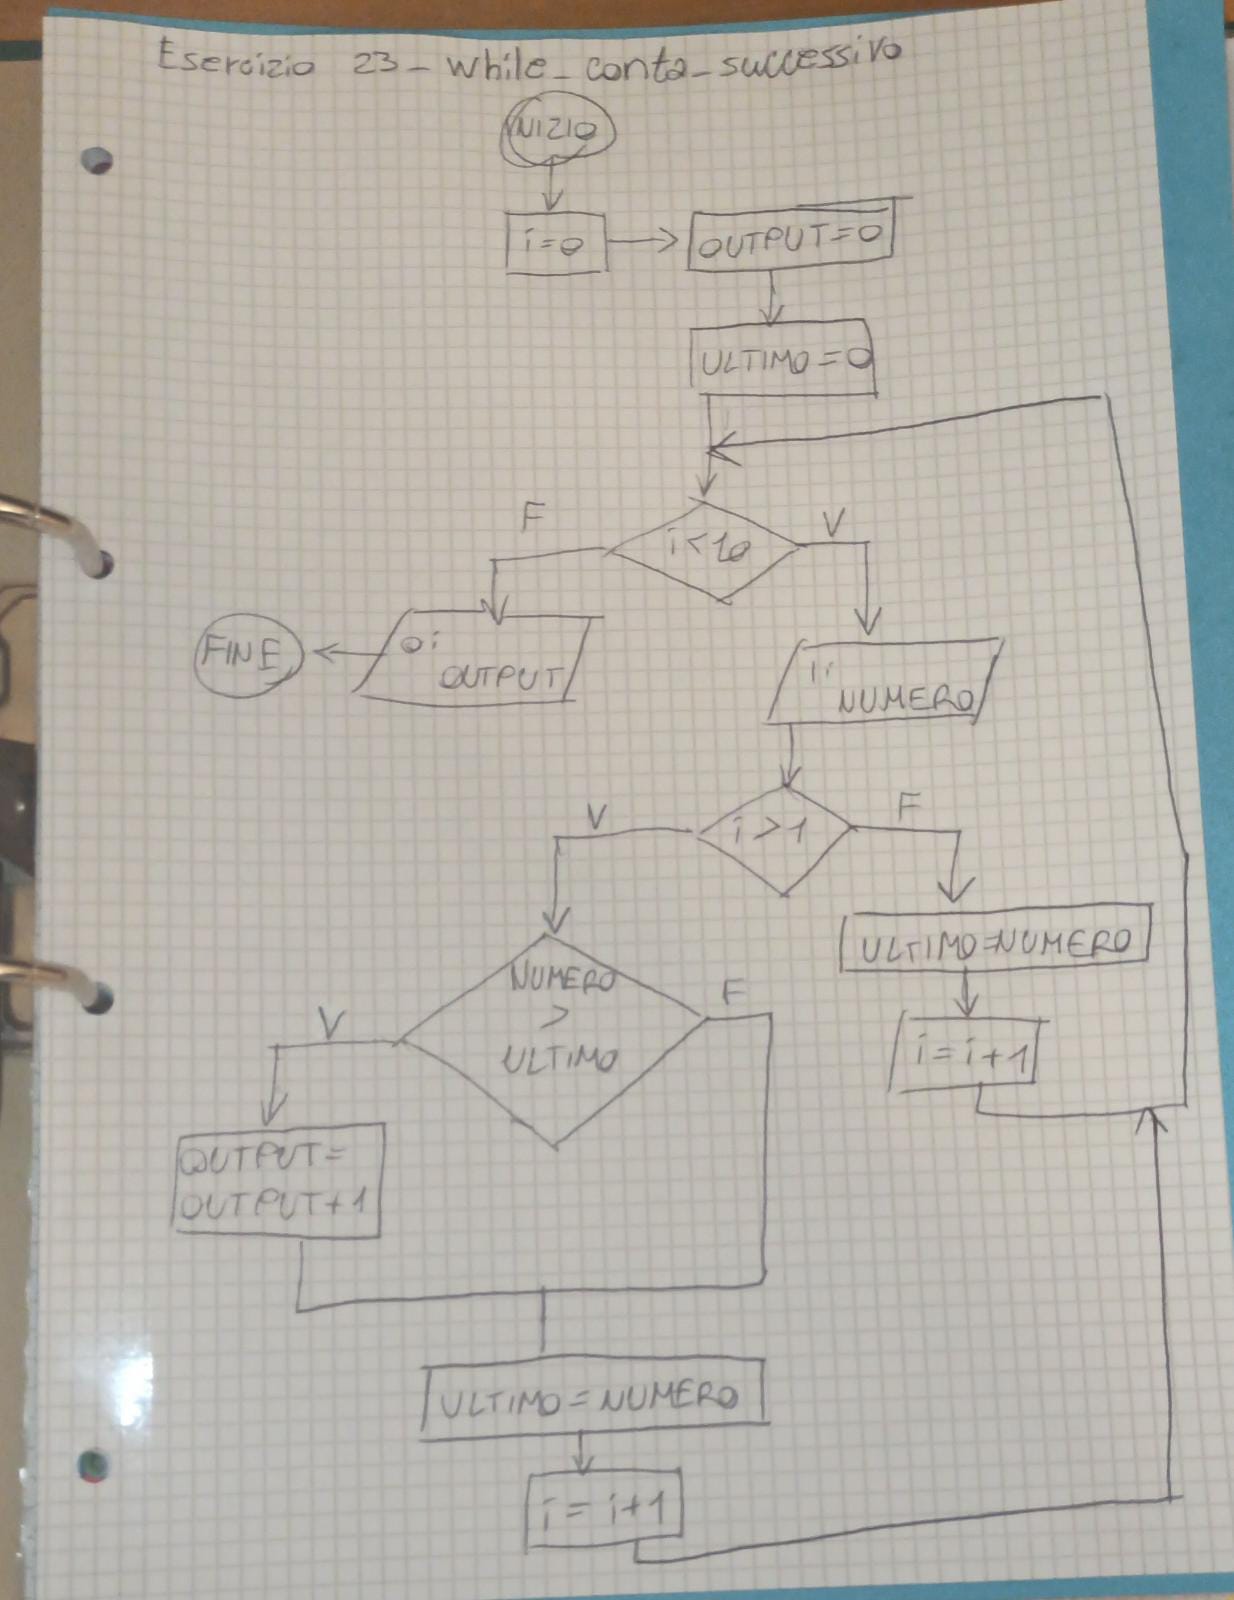 Esercizio 23_while_conta_successivo
INIZIO
i=0
OUTPUT=0
ULTIMO=0
i<10
F
V
O:
OUTPUT
FINE
I:
NUMERO
i>1
V
F
ULTIMO=NUMERO
i=i+1
NUMERO
>
ULTIMO
V
F
OUTPUT=
OUTPUT+1
ULTIMO=NUMERO
i=i+1